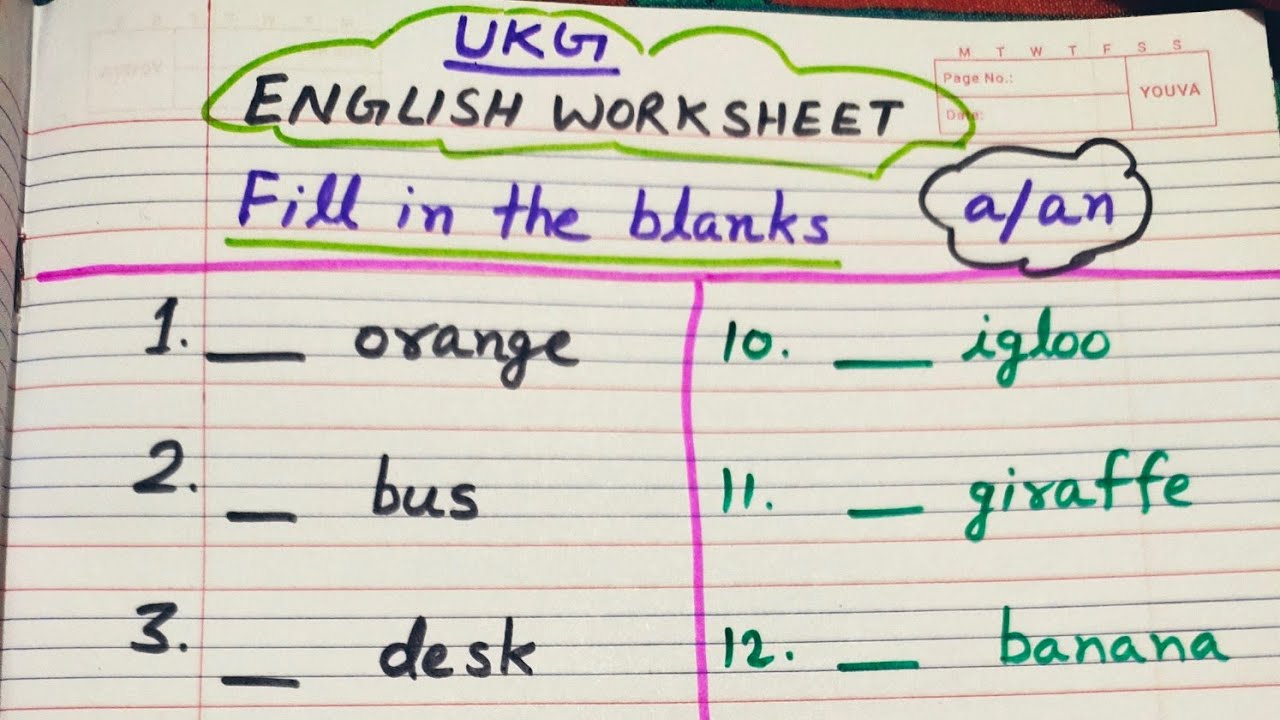 UKG
ENGLISH WORKSHEET
M T W T F S S
Page No.:
Date:
YOUVA
Fill in the blanks
a/an
1. __ orange
2. __ bus
3. __ desk
10. __ igloo
11. __ giraffe
12. __ banana